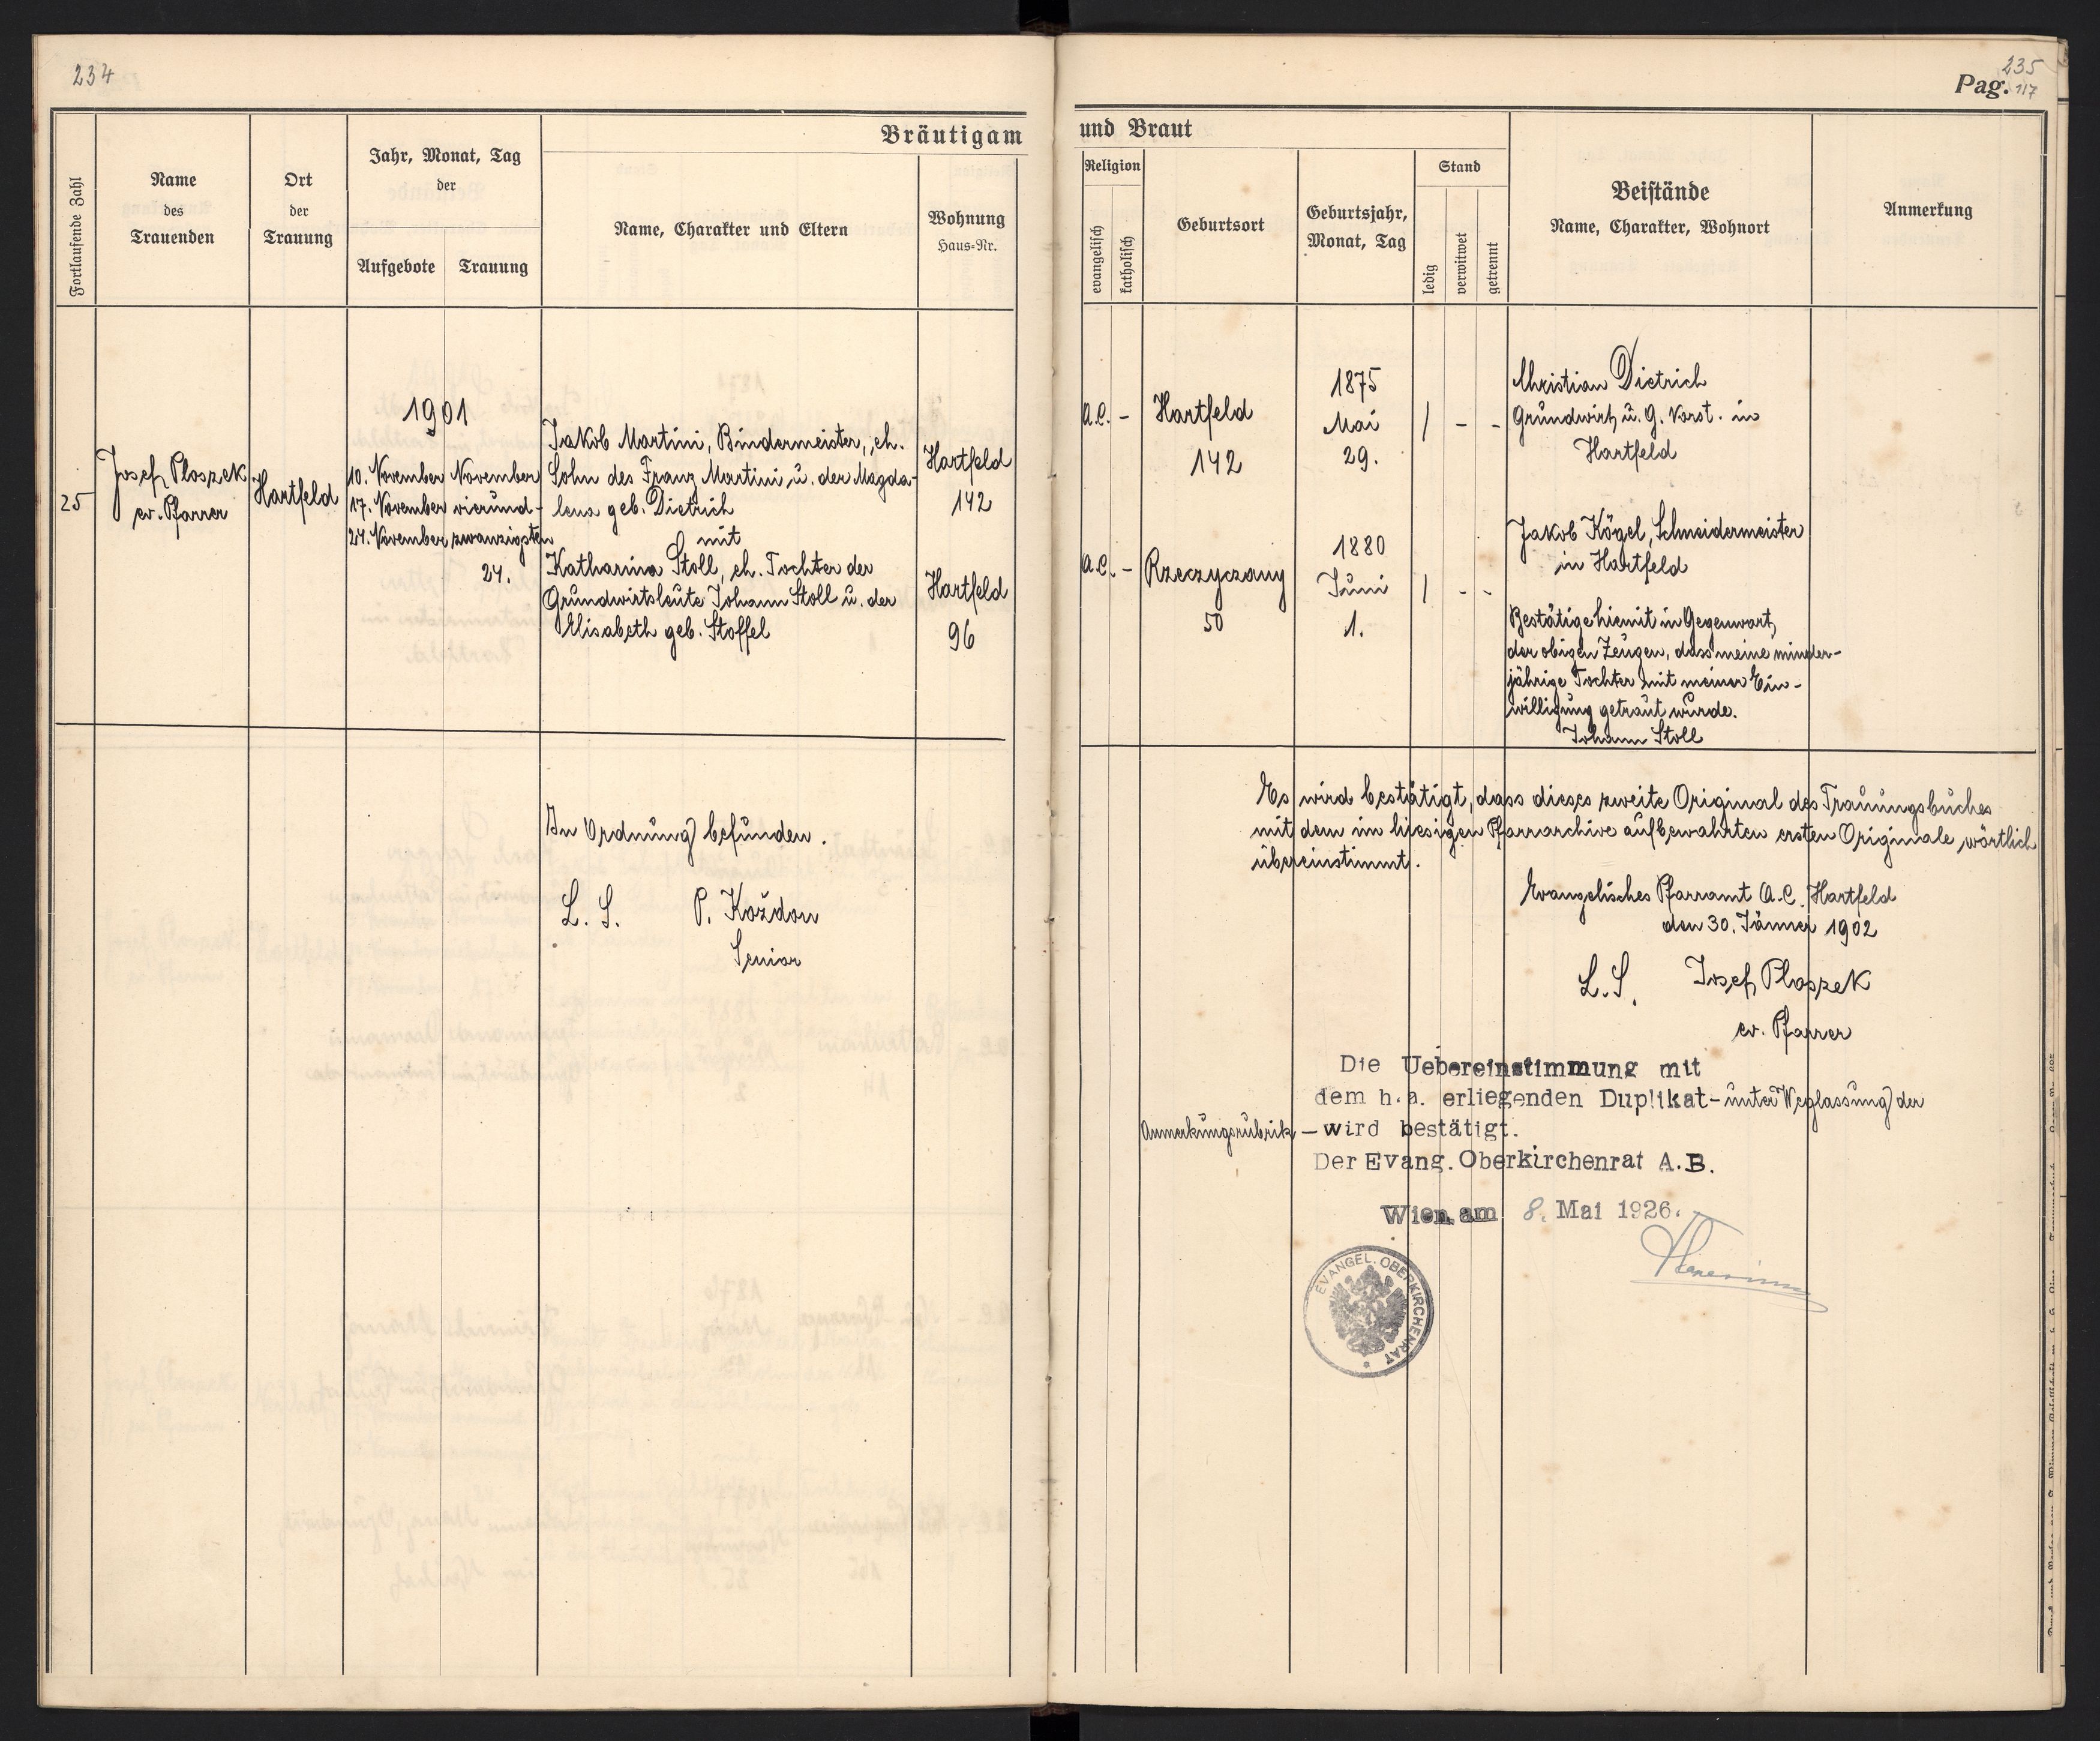 234
Bräutigam
Fortlaufende Zahl
Name
des
Trauenden
Ort
der
Trauung
Jahr, Monat, Tag
der
Aufgebote
Trauung
Name, Charakter und Eltern
Wohnung
Haus=Nr.
25
Josef Ploszek
ev. Pfarrer
Hartfeld
1901
10. November
17. November
24. November
November
vierund-
zwanzigsten
24.
Jakob Martini, Bindermeister, eh.
Sohn des Franz Martini u. der Magda-
lena geb. Dietrich
mit
Katharina Stoll, eh. Tochter der
Grundwirtsleute Johann Stoll u. der
Elisabeth geb. Stoffel
Hartfeld
142
Hartfeld
96
In Ordnung befunden.
L. S. P. Koždon
Senior
235
Pag. 117
und Braut
Religion
evangelisch
katholisch
Geburtsort
Geburtsjahr,
Monat, Tag
Stand
ledig
verwitwet
getrennt
Beistände
Name, Charakter, Wohnort
Anmerkung
A.C. -
Hartfeld
142
1875
Mai
29.
/ - -
Christian Dietrich
Grundwirt u. G. Vorst. in
Hartfeld
A.C. -
Rzeczyczany
50
1880
Juni
1.
/ - -
Jakob Kögel, Schneidermeister
in Hartfeld
Bestätige hiemit in Gegenwart
der obigen Zeugen, dass meine minder-
jährige Tochter mit meiner Ein-
willigung getraut wurde.
Johann Stoll
Es wird bestätigt, dass dieses zweite Original des Trauungsbuches
mit dem im hiesigen Pfarrarchive aufbewahrten ersten Originale wörtlich
übereinstimmt.
Evangelisches Pfarramt A.C. Hartfeld
den 30. Jänner 1902
L.S. Josef Ploszek
ev. Pfarrer
Die Uebereinstimmung mit
dem h.a. erliegenden Duplikat - unter Weglassung der
Anmerkungsrubrik - wird bestätigt.
Der Evang. Oberkirchenrat A.B.
Wien am 8. Mai 1926.
EVANGEL. OBERKIRCHENRAT